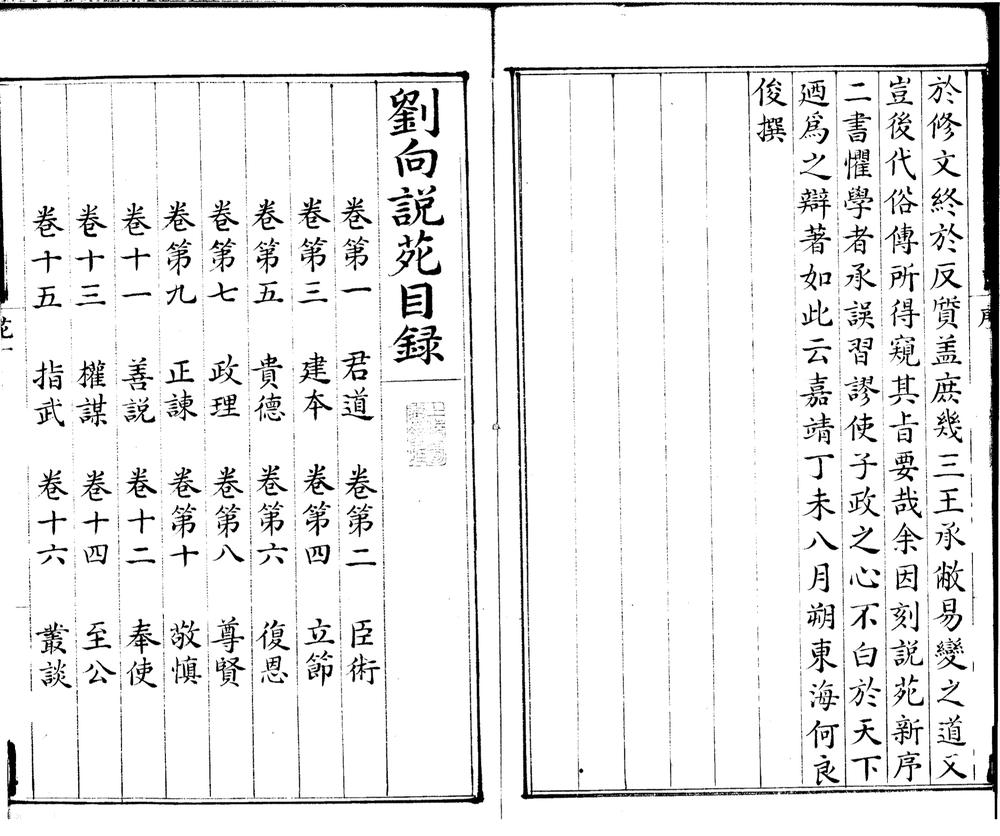 於修文終於反質盖庶幾三王承敝易變之道又
豈後代俗傳所得窺其旨要哉余因刻説苑新序
二書懼學者承誤習謬使子政之心不白於天下
廼爲之辯著如此云嘉靖丁未八月朔東海何良
俊撰
序
劉向説苑目録
卷第一 君道 卷第二 臣術
卷第三 建本 卷第四 立節
卷第五 貴德 卷第六 復恩
卷第七 政理 卷第八 尊賢
卷第九 正諫 卷第十 敬慎
卷十一 善説 卷十二 奉使
卷十三 權謀 卷十四 至公
卷十五 指武 卷十六 叢談
苑一